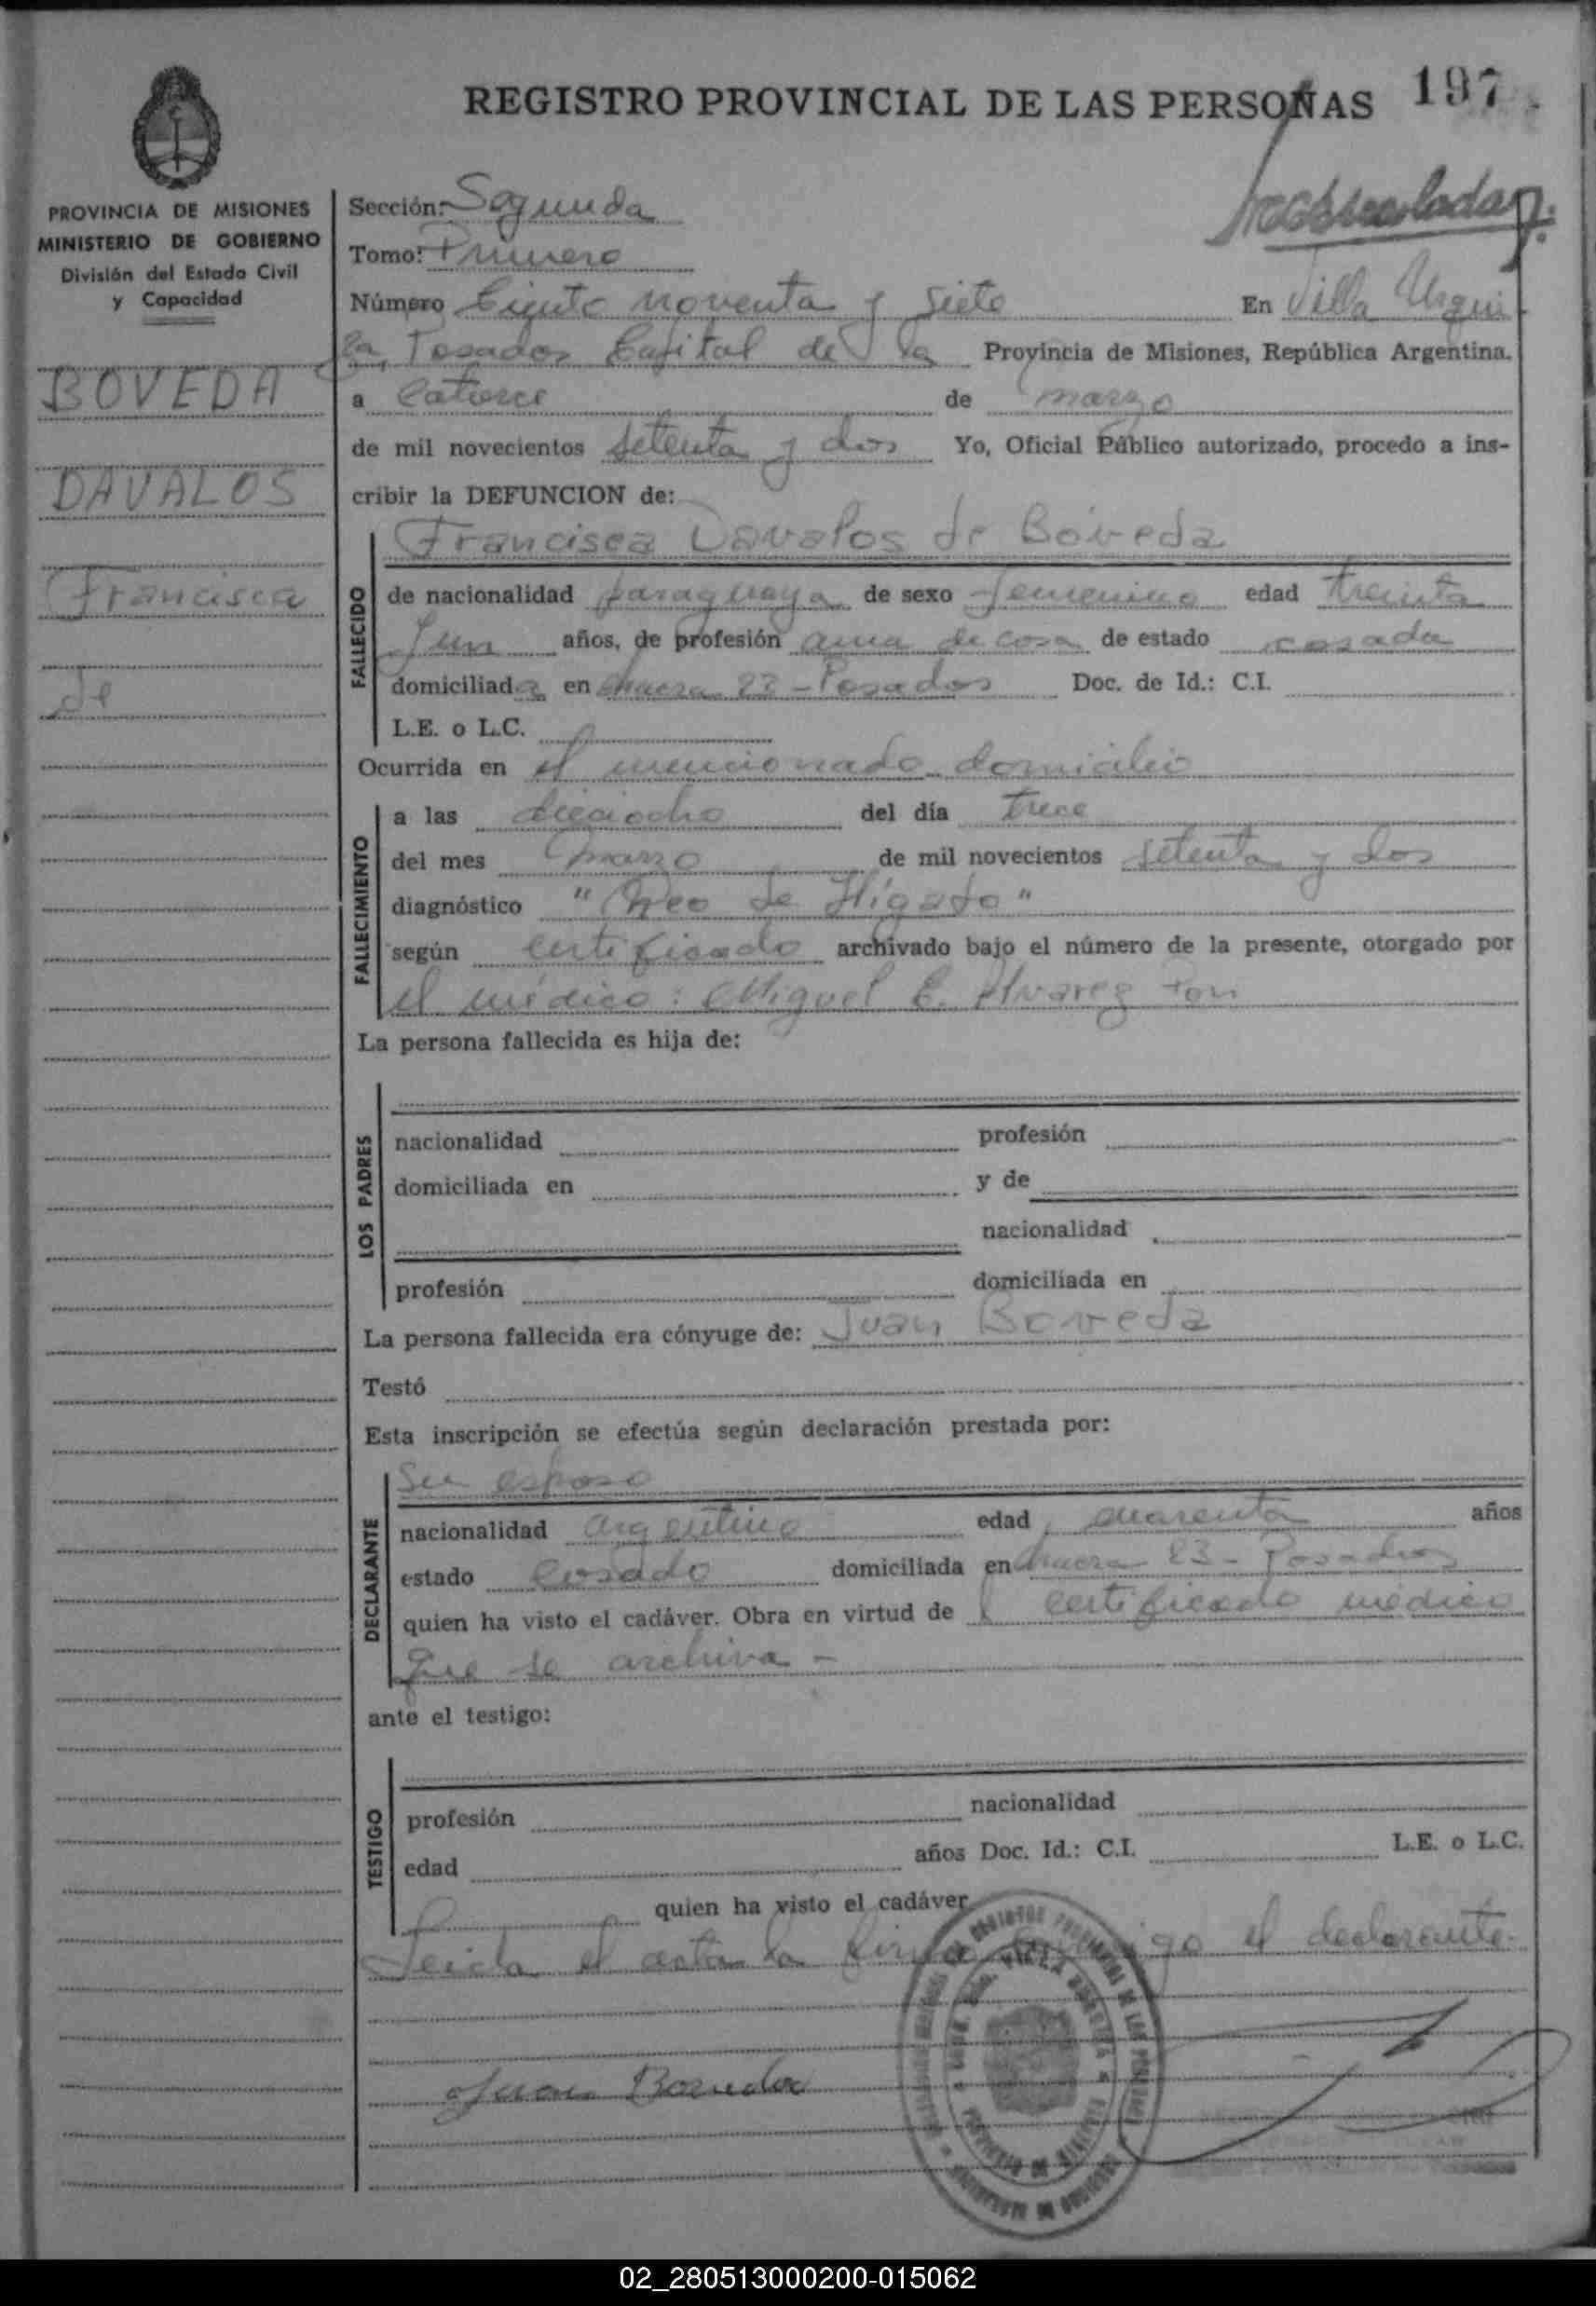 REGISTRO PROVINCIAL DE LAS PERSONAS 197
PROVINCIA DE MISIONES
MINISTERIO DE GOBIERNO
División del Estado Civil
y Capacidad
BOVEDA
DAVALOS
Francisca
de
Sección: Segunda
Tomo: Primero
Número Ciento noventa y siete En Villa Urqui
za, Posadas Capital de la Provincia de Misiones, República Argentina.
a Catorce de marzo
de mil novecientos setenta y dos Yo, Oficial Público autorizado, procedo a ins-
cribir la DEFUNCION de:
Francisca Davalos de Bóveda
FALLECIDO
de nacionalidad paraguaya de sexo femenino edad treinta
y un años, de profesión ama de casa de estado casada
domiciliada en chacra 23 - Posadas Doc. de Id.: C.I.
L.E. o L.C.
Ocurrida en el mencionado domicilio
FALLECIMIENTO
a las dieciocho del día trece
del mes marzo de mil novecientos setenta y dos
diagnóstico "Neo de Hígado"
según certificado archivado bajo el número de la presente, otorgado por
el médico: Miguel E. Alvarez
La persona fallecida es hija de:
LOS PADRES
nacionalidad profesión
domiciliada en y de
nacionalidad
profesión domiciliada en
La persona fallecida era cónyuge de: Juan Boveda
Testó
Esta inscripción se efectúa según declaración prestada por:
Su esposo
DECLARANTE
nacionalidad argentino edad cuarenta años
estado casado domiciliada en chacra 23 - Posadas
quien ha visto el cadáver. Obra en virtud de certificado médico
que se archiva -
ante el testigo:
TESTIGO
profesión nacionalidad
edad años Doc. Id.: C.I. L.E. o L.C.
quien ha visto el cadáver
Leida el acta la firma conmigo el declarante.
Juan Boveda
02_280513000200-015062